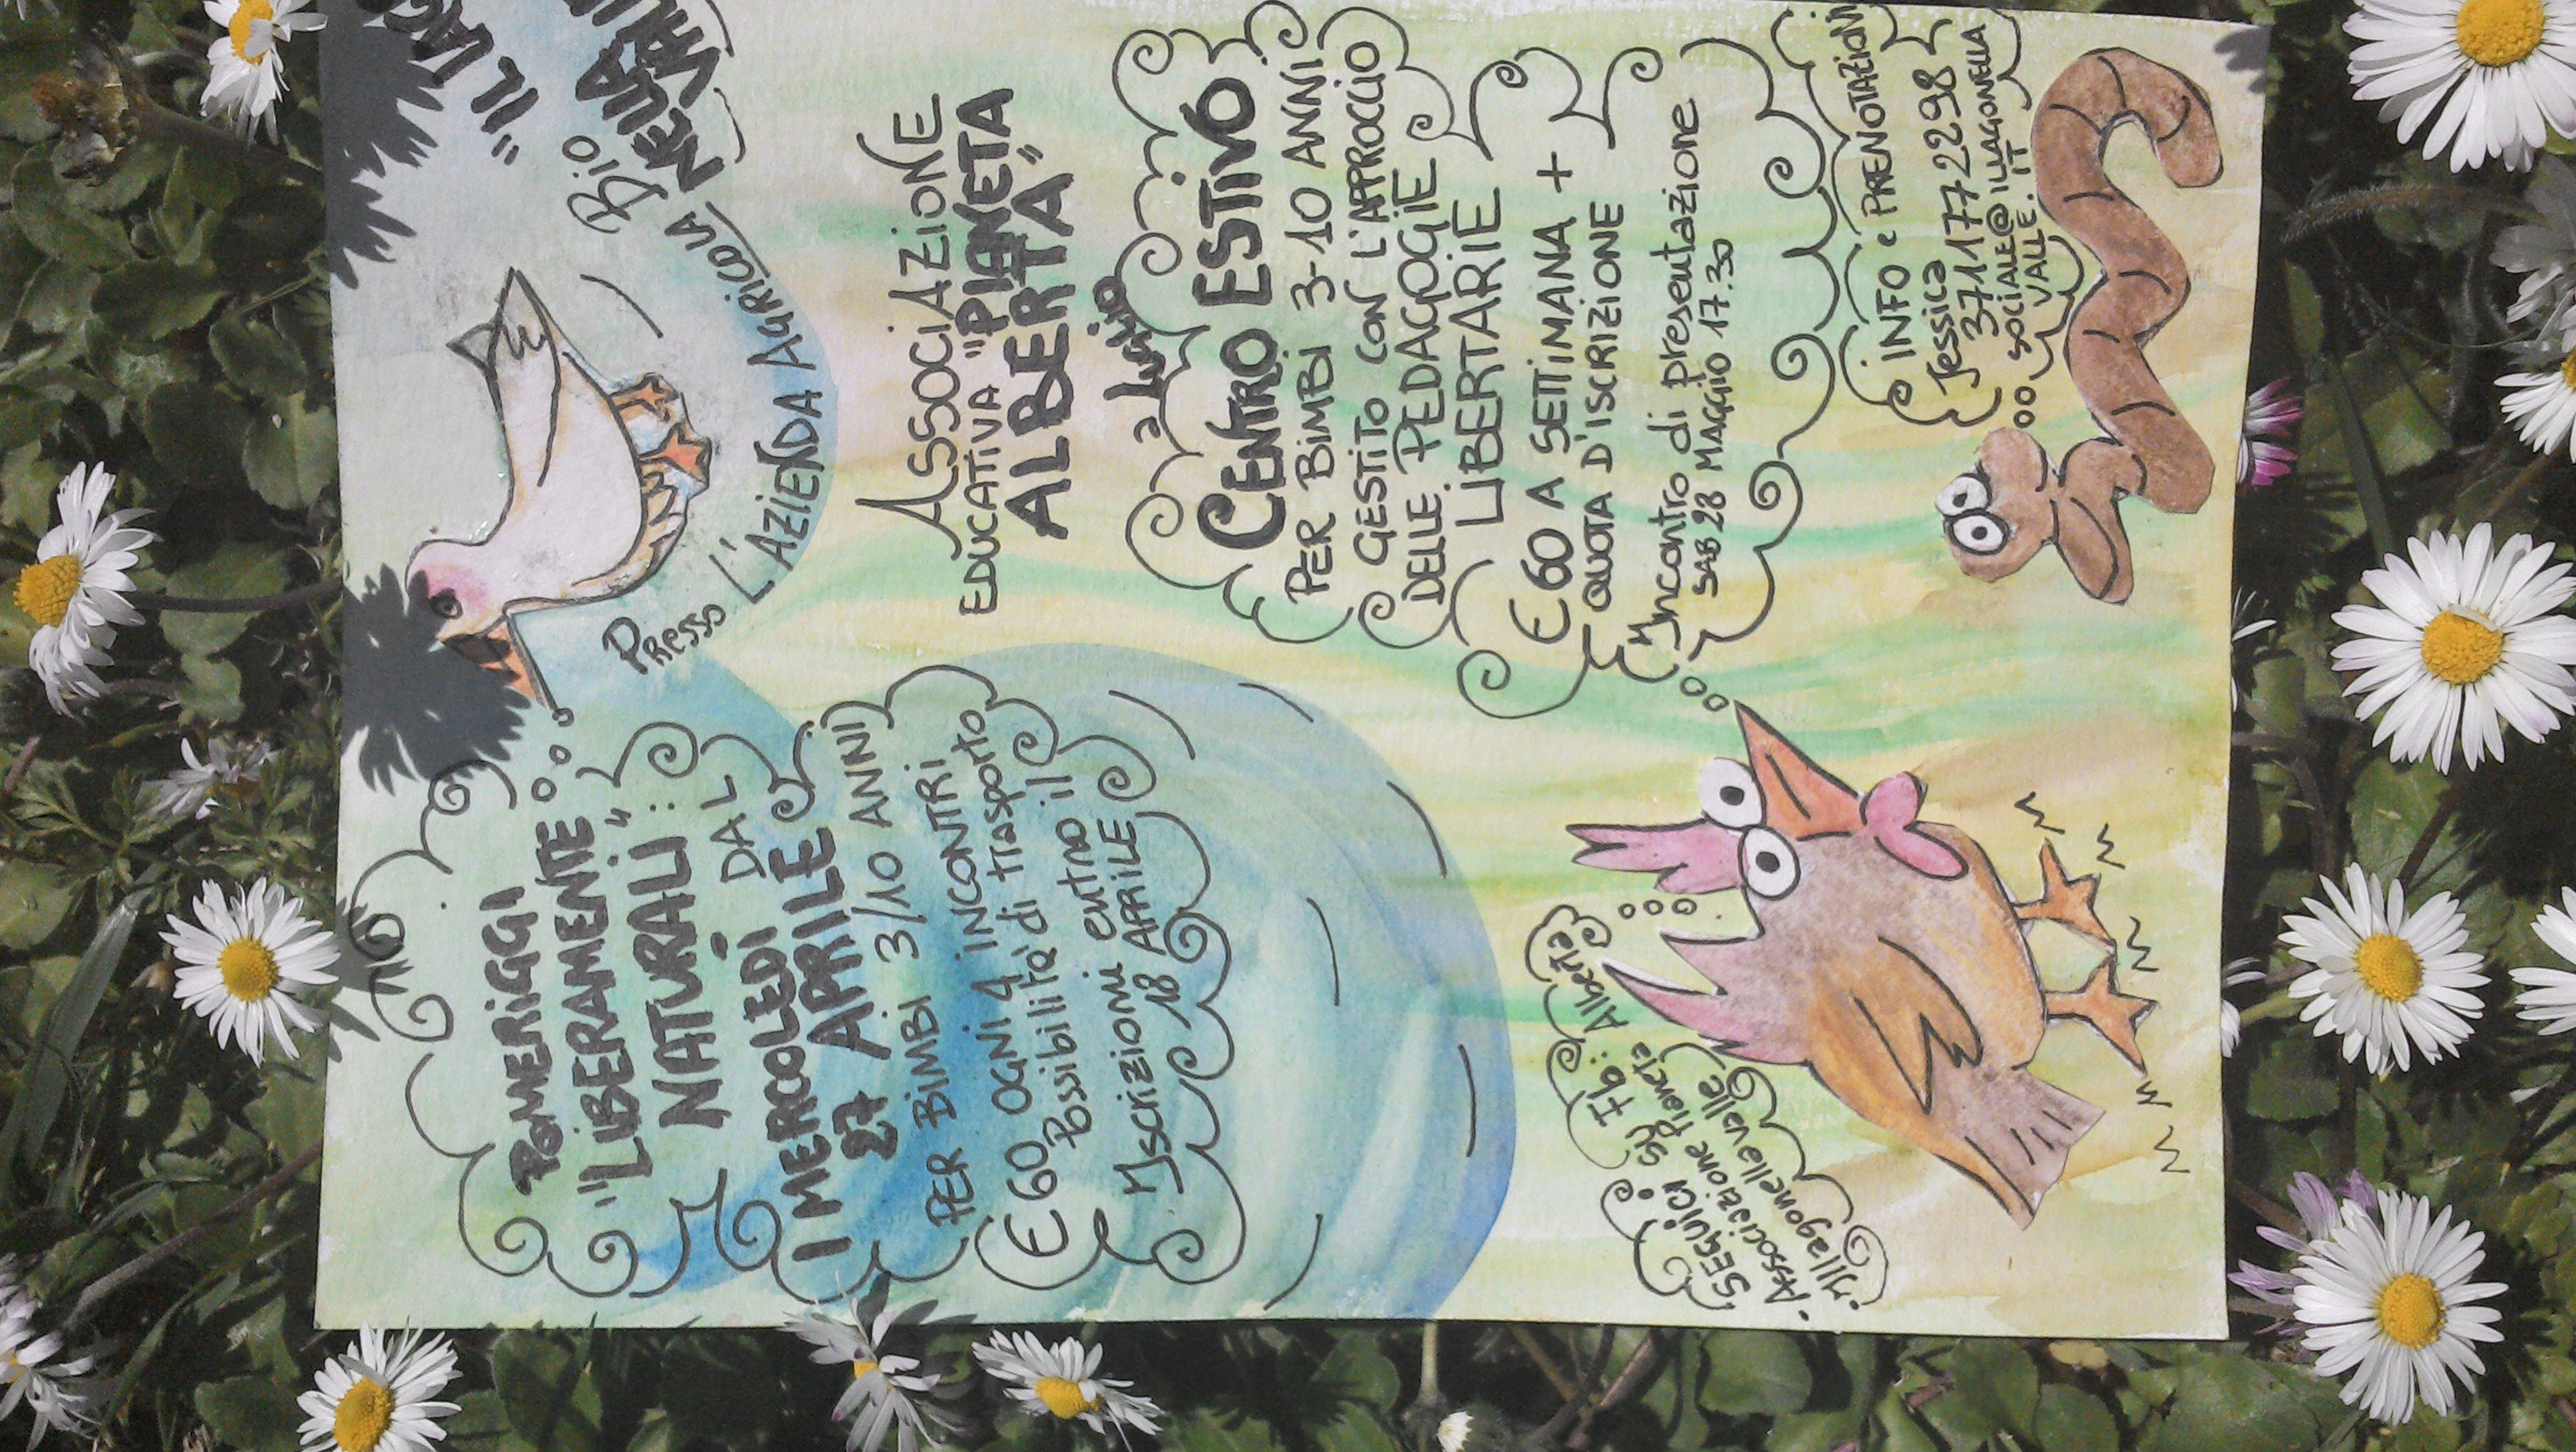 POMERIGGI
"LIBERAMENTE
NATURALI":
DAL
I MERCOLEDÌ
27 APRILE
PER BIMBI 3/10 ANNI
€ 60 OGNI 4 INCONTRI
Possibilità di trasporto
Iscrizioni entro il
18 APRILE
Presso
L'AZIENDA AGRICOLA
BiO
"IL LAGO
NELLA
NEVALLE
ASSOCIAZIONE
EDUCATIVA "PIANETA
ALBERTA"
a Luglio
CENTRO ESTIVO
PER BIMBI 3-10 ANNI
GESTITO CON L'APPROCCIO
DELLE PEDAGOGIE
LIBERTARIE
€ 60 A SETTIMANA +
QUOTA D'ISCRIZIONE
Incontro di presentazione
SAB 28 MAGGIO 17.30
INFO e PRENOTAZIONI
Jessica
3711772298
SOCIALE@ILLAGONELLA
VALLE.IT
SEGUICI SU Fb:
• Associazione Pianeta Alberta
• Illagonellavalle